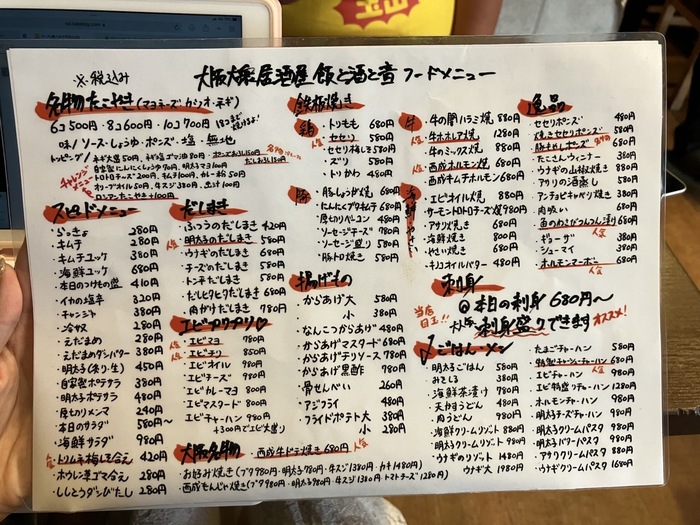 ※税込み
大阪大衆居酒屋 飯と酒と音 フードメニュー
名物たこやき(マヨネーズ・カツオ・ネギ)
6コ500円・8コ600円・10コ700円
味/ソース・しょうゆ・ポンズ・塩・無地
チャレンジメニュー
ロシアンたこやき+100円
スピードメニュー
・らっきょ 280円
・キムチ 280円
・キムチユッケ 380円
・海鮮ユッケ 680円
・本日のつけもの盛 410円
・イカの塩辛 320円
・チャンジャ 380円
・冷奴 280円
・えだまめ 280円
・えだまめダシバター 380円
・明太子(炙り・生) 450円
・自家製ポテサラ 380円
・明太ポテサラ 480円
・厚切りメンマ 240円
・本日のサラダ 580円〜
・海鮮サラダ 980円
・トリムネ梅しそ合え 420円
・ホウレン草ゴマ合え 280円
・ししとうダシびたし 280円
だしまき
・ふつうのだしまき 420円
人気 ・明太子のだしまき 580円
・ウナギのだしまき 680円
・チーズのだしまき 580円
・トン平だしまき 580円
・だしヒタヒタだしまき 680円
・肉がけだしまき 780円
エビプリプリ♡
・エビマヨ 780円
人気 ・エビチリ 850円
・エビオイル 980円
・エビチーズ 980円
・エビカレーマヨ 800円
・エビマスタード 800円
・エビチャーハン 980円
+300円でエビ大盛り
大阪名物
・西成牛ドテ焼き 680円 人気
・お好み焼き(ブタ980円・明太子980円・牛スジ1380円・カキ1480円)
・西成もんじゃ焼き(ブタ980円・明太980円・牛スジ1380円・トマトチーズ1280円)
鉄板焼き
鶏
・トリモモ 680円
・セセリ 580円
・セセリ梅しそ 580円
・ズリ 580円
・トリかわ 480円
豚
・豚しょうが焼 680円
・にんにくブタキムチ 680円
・厚切りベーコン 480円
・ソーセージチーズ 780円
・ソーセージ盛り 580円
・豚トロ焼き 580円
揚げもの
・からあげ大 580円
・小 380円
・なんこつからあげ 480円
・からあげマスタード 680円
・からあげチリソース 780円
・からあげ黒酢 780円
・骨せんべい 260円
・アジフライ 480円
・フライドポテト大 380円
小 280円
牛
・牛の闇ハラミ焼 880円
・牛ホホレア焼 1280円
・牛のミックス焼 880円
人気 ・西成ホルモン焼 680円
・西成キムチホルモン 680円
・エビオイル焼 880円
・サーモントロトロチーズ焼 980円
・アサリ焼き 680円
・海鮮焼き 800円
・やさい焼き 680円
・キノコオイルバター 480円
逸品
・セセリポンズ 480円
・焼きセセリポンズ 580円
・豚しゃぶポンズ 880円
・たこさんウィンナー 380円
・ウナギの山椒焼き 880円
・アサリの酒蒸し 580円
・アンチョビキャベツ焼き 380円
・肉吸い 680円
・ギョーザ 380円
・シューマイ 380円
・ホルモンマーボー 880円
人気
刺身
当店目玉!!
◎本日の刺身 680円〜
刺身盛りできます オススメ!
〆ごはん・メン
・明太ごはん 580円
・みそしる 380円
・海鮮茶漬け 780円
・天かすうどん 480円
・肉うどん 980円
・海鮮クリームリゾット 880円
・明太クリームリゾット 980円
・ウナギのリゾット 1480円
・ウナギ大 1980円
・たまごチャーハン 580円
・特製チャーシューチャーハン 680円
人気
・エビチャーハン 980円
・エビ特盛りチャーハン 1280円
・ホルモンチャーハン 980円
・明太子チーズチャーハン 980円
・明太クリームパスタ 980円
・明太バターパスタ 980円
・アサリクリームパスタ 880円
・ウナギクリームパスタ 1680円